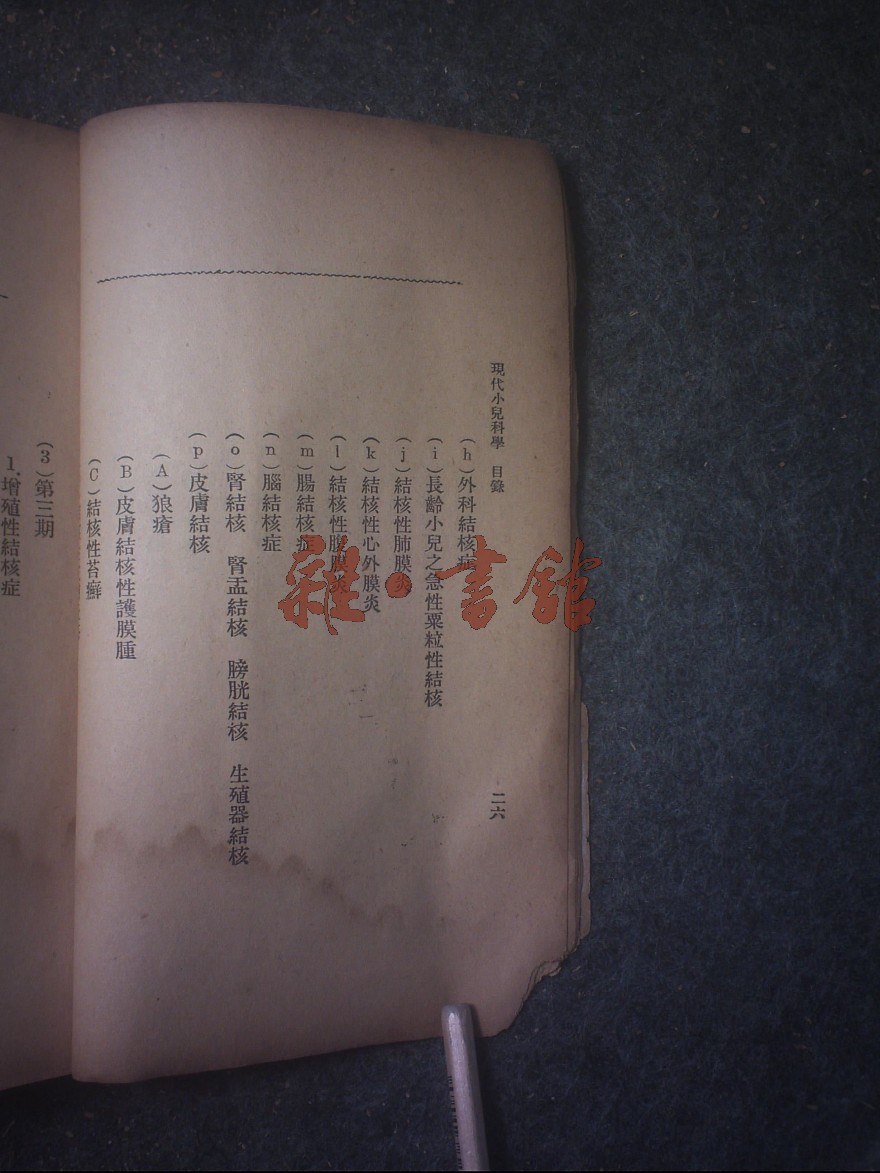 現代小兒科學 目錄 二六
(h)外科結核症
(i)長齡小兒之急性粟粒性結核
(j)結核性肋膜炎
(k)結核性心外膜炎
(l)結核性腹膜炎
(m)腸結核症
(n)腦結核症
(o)腎結核 腎盂結核 膀胱結核 生殖器結核
(p)皮膚結核
(A)狼瘡
(B)皮膚結核性護膜腫
(C)結核性苔癬
(3)第三期
1.增殖性結核症
雜·書館